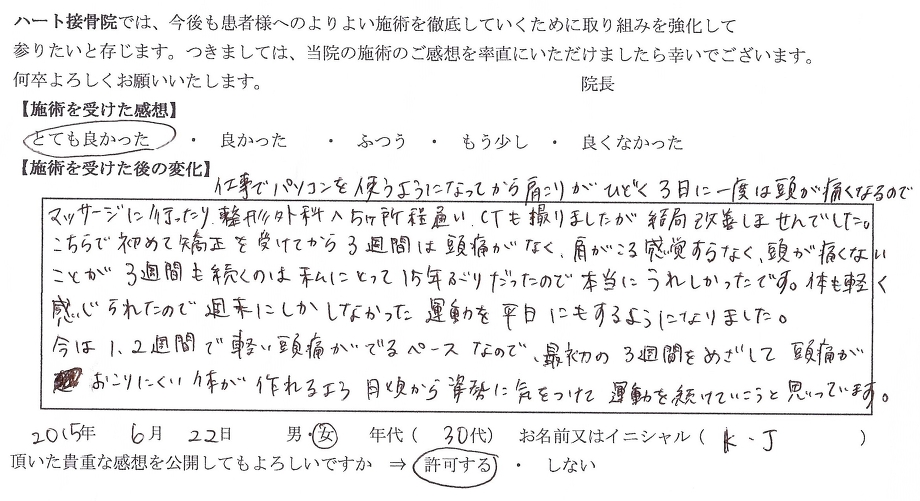 ハート接骨院では、今後も患者様へのよりよい施術を徹底していくために取り組みを強化して
参りたいと存じます。つきましては、当院の施術のご感想を率直にいただけましたら幸いでございます。
何卒よろしくお願いいたします。 院長
【施術を受けた感想】
とても良かった ・ 良かった ・ ふつう ・ もう少し ・ 良くなかった
【施術を受けた後の変化】
仕事でパソコンを使うようになってから肩こりがひどく3日に一度は頭が痛くなるので
マッサージに行ったり、整形外科へ5ヶ所程通い、CTも撮りましたが結局改善しませんでした。
こちらで初めて矯正を受けてから3週間は頭痛がなく、肩がこる感覚すらなく、頭が痛くない
ことが3週間も続くのは私にとって15年ぶりだったので本当にうれしかったです。体も軽く
感じられたので週末にしかしなかった運動を平日にもするようになりました。
今は1、2週間で軽い頭痛がでるペースなので、最初の3週間をめざして頭痛が
おこりにくい体が作れるよう日頃から姿勢に気をつけて運動を続けていこうと思っています。
2015年 6月 22日 男・女 年代(30代) お名前又はイニシャル(K・J)
頂いた貴重な感想を公開してもよろしいですか ⇒ 許可する ・ しない